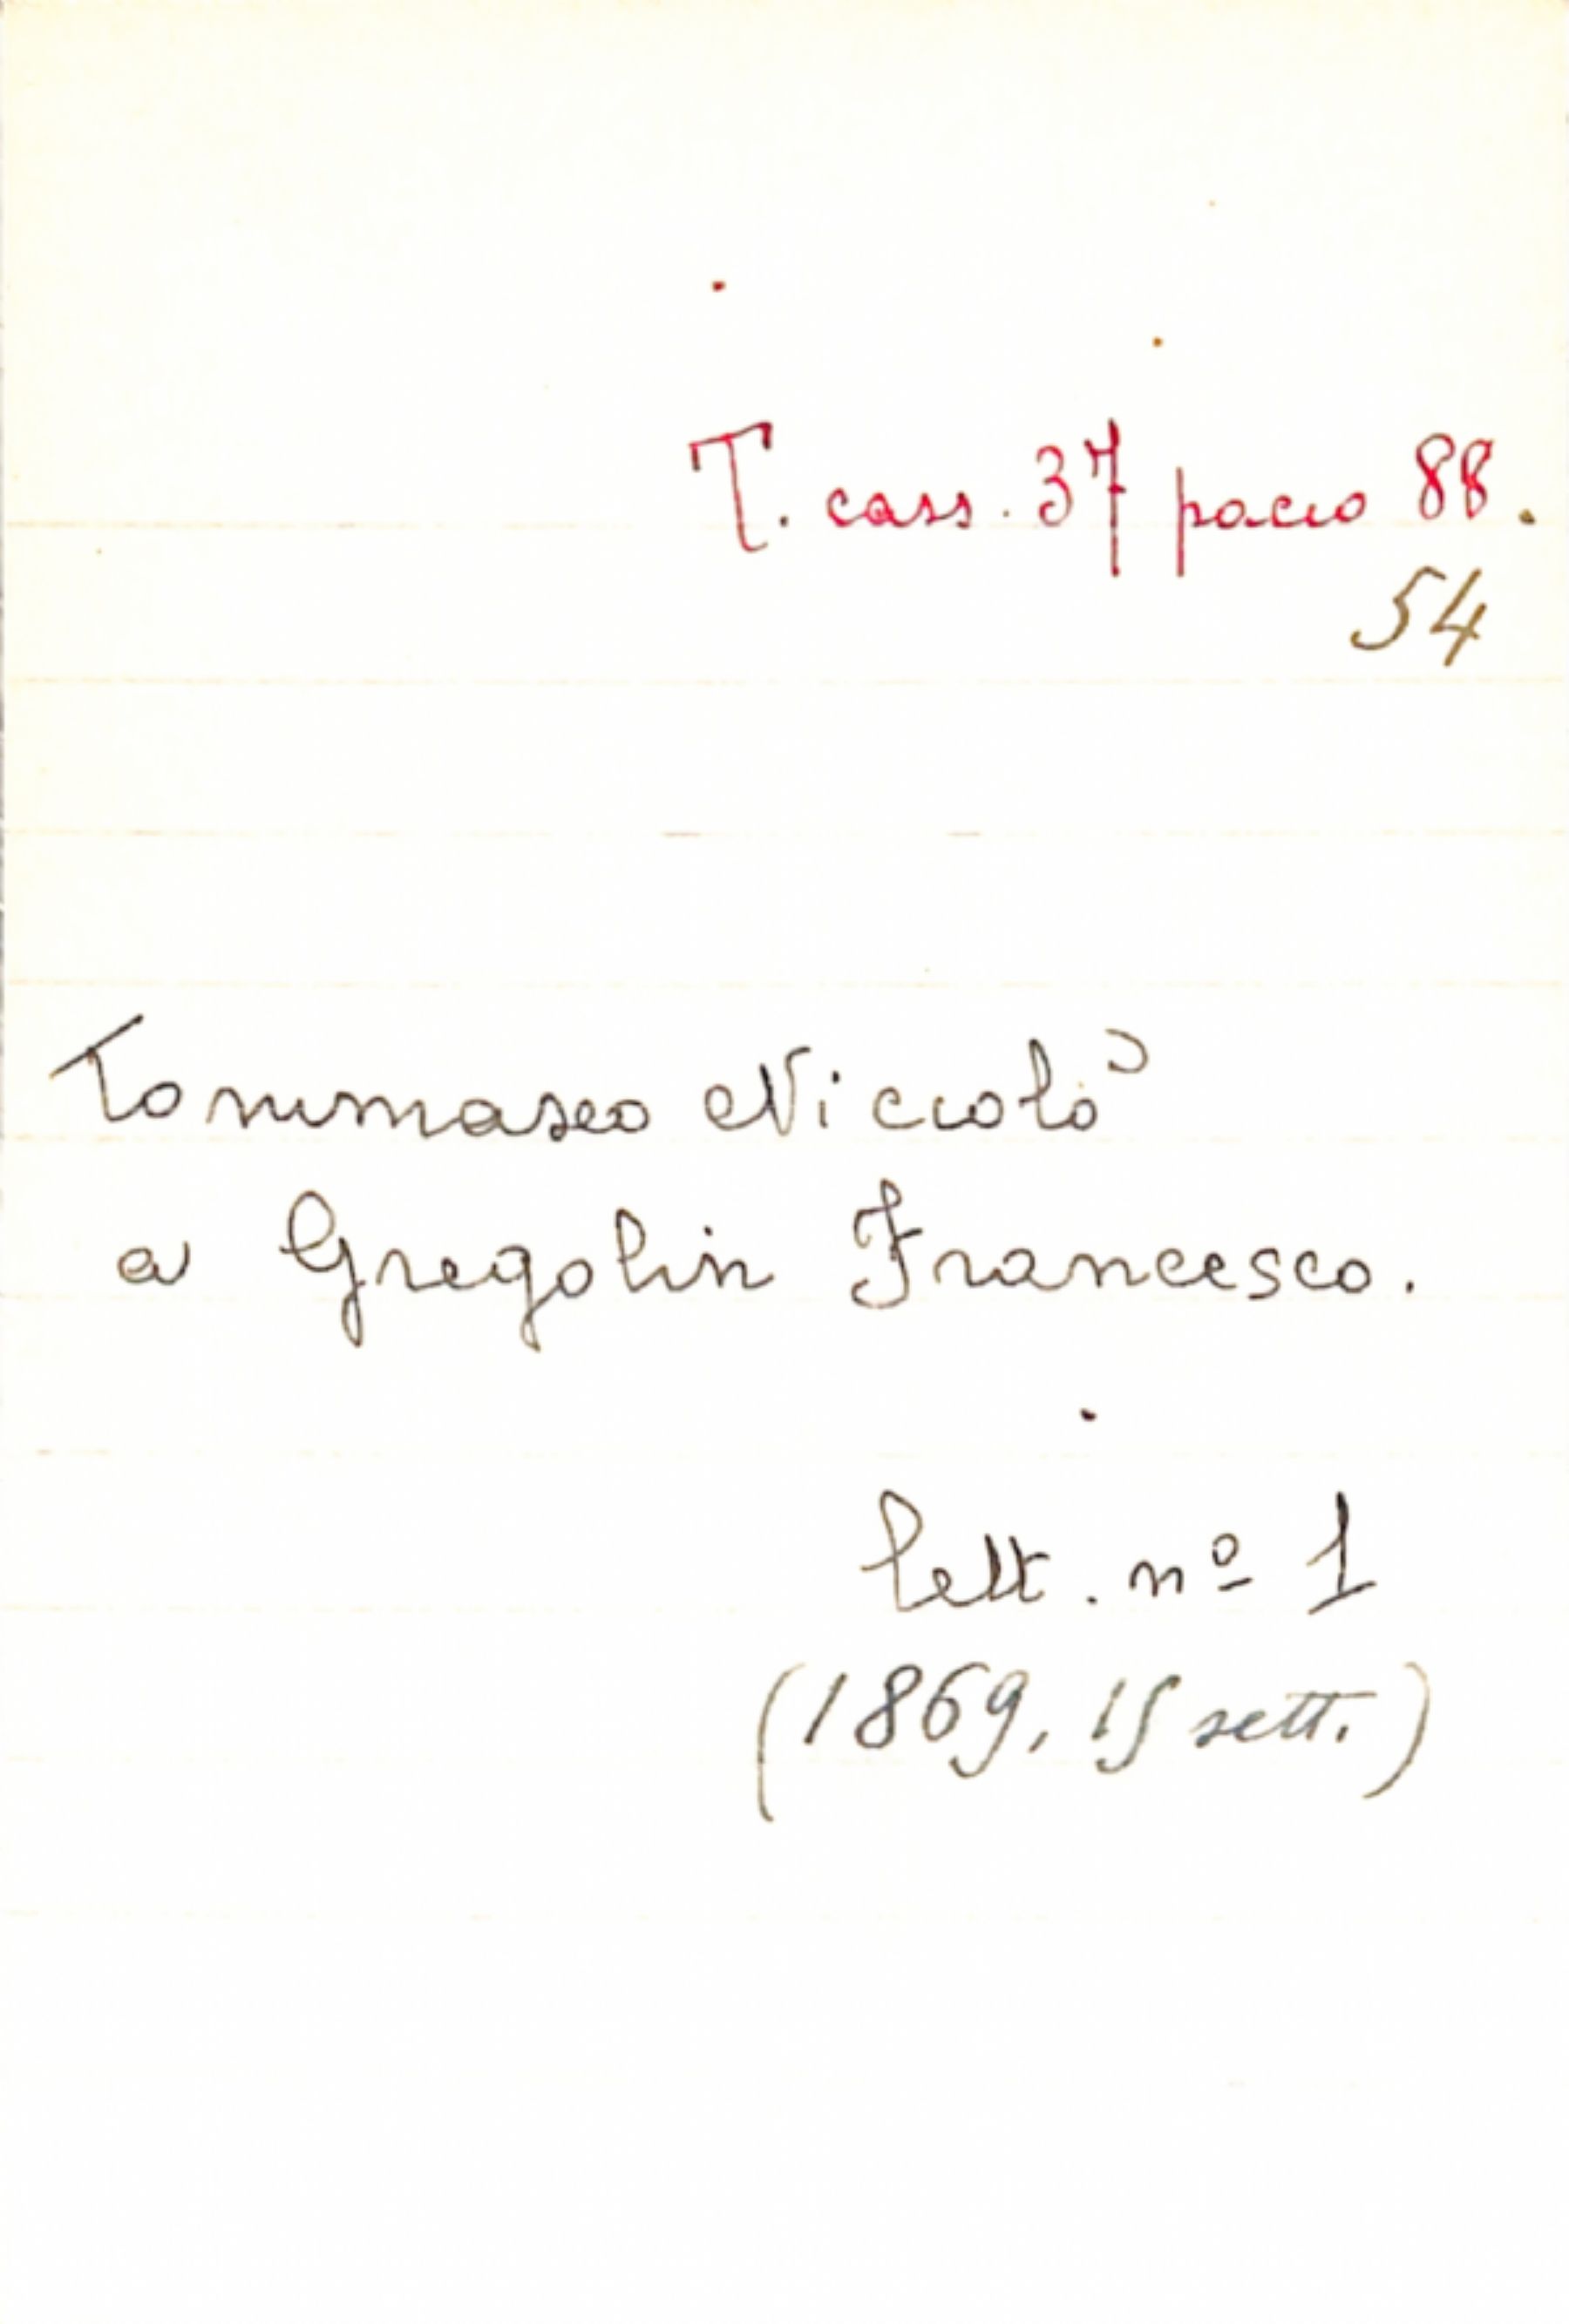 T. cass. 37 pacco 88.
54
Tommaseo Niccolò
a Gregolin Francesco.
lett. nº 1
(1869, 15 sett.)